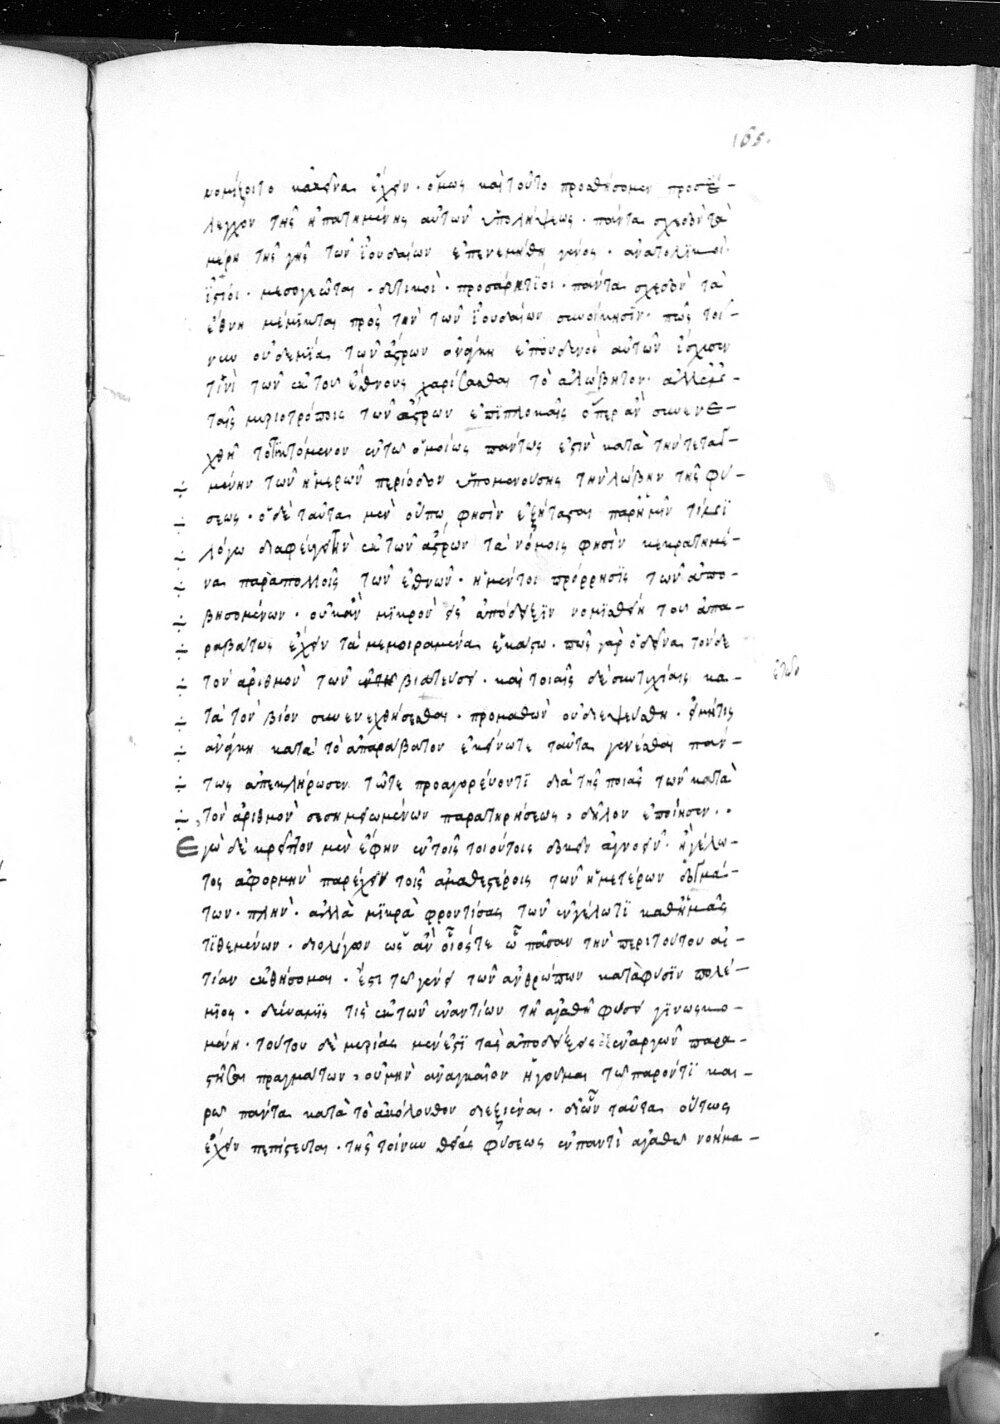 165.
νομίζοιτο κἀκεῖνα ἔχειν · ὅμως καὶ τοῦτο προσθήσομεν πρὸς ἔ-
λεγχον τῆς ἠπατημένης αὐτῶν ὑπολήψεως · πάντα σχεδὸν τὰ
μέρη τῆς γῆς τῶν ἰουδαίων ἐπενεμήθη γένος · ἀνατολικοὶ ·
μεσογεῶται · δυτικοὶ · προσάρκτιοι · πάντα σχεδὸν τὰ
ἔθνη μέμικται πρὸς τὴν τῶν ἰουδαίων συνοίκησιν · πῶς τοί-
νυν οὐδεμία τῶν ἄστρων ἀνάγκη ἐπ' οὐδενὸς αὐτῶν ἴσχυσεν
τινὶ τῶν ἐκ τοῦ ἔθνους χαρίσασθαι τὸ ἀλώβητον · ἀλλ' ἐν
ταῖς μυριοτρόποις τῶν ἄστρων ἐπιπλοκαῖς ὅπερ ἂν συνενε-
χθῇ τὸ τικτόμενον οὕτω ὁμοίως πάντως ἐστὶν κατὰ τὴν τεταγ-
μένην τῶν ἡμερῶν περίοδον ὑπομενούσης τὴν λώβην τῆς φύ-
σεως · ὁ δὲ ταῦτα μὲν οὔπω φησὶν ἐξήτασται παρ' ἡμῖν τίνι
λόγῳ διαφεύγειν ἐκ τῶν ἄστρων τὰ νόμοις φησὶν κεκρατημέ-
να παρὰ πολλοῖς τῶν ἐθνῶν · ἡ μέντοι πρόρρησις τῶν ἀπο-
βησομένων · οὐκ ἂν μικρὸν εἰς ἀπόδειξιν νομισθείη τοῦ ἀπα-
ραβάτως ἔχειν τὰ μεμοιραμένα ἑκάστῳ · πῶς γὰρ ὁ δεῖνα τόνδε
τὸν ἀριθμὸν τῶν βιώτευσει · καὶ τοιαῖς δὲ συντυχίαις κα-
τὰ τὸν βίον συνενεχθήσεσθαι · προμαθὼν οὐ διεψεύσθη · εἰ μή τις
ἀνάγκη κατὰ τὸ ἀπαράβατον ἐκείνῳ τε ταῦτα γενέσθαι πάν-
τως ἀπεκλήρωσεν τῷ τε προαγορεύοντι διὰ τῆς ποιᾶς τῶν κατὰ
τὸν ἀριθμὸν σεσημειωμένων παρατηρήσεως, δῆλον ἐποίησεν · ·
Ἐγὼ δὲ κρεῖττον μὲν ἔφην ἐν τοῖς τοιούτοις δοκεῖν ἀγνοεῖν · ἢ γέλω-
τος ἀφορμὴν παρέχειν τοῖς ἀμαθεστέροις τῶν ἡμετέρων δογμά-
των · πλὴν · ἀλλὰ μικρὰ φροντίσας τῶν ἐν γέλωτι καθ' ἡμᾶς
τιθεμένων · δι' ὀλίγων ὡς ἂν οἷός τε ὦ πᾶσαν τὴν περὶ τούτου αἰ-
τίαν ἐκθήσομαι · ἔστι τῷ γένει τῶν ἀνθρώπων κατὰ φύσιν πολέ-
μιος · δύναμίς τις ἐκ τῶν ἐναντίων τῇ ἀγαθῇ φύσει γινωσκο-
μένη · τούτου δὲ μυρίας μὲν ἔστι τὰς ἀποδείξεις ἐξ ἐναργῶν παρα-
στῆσαι πραγμάτων, οὐ μὴν ἀναγκαῖον ἡγοῦμαι τῷ παρόντι και-
ρῷ πάντα κατὰ τὸ ἀκόλουθον διεξιέναι · δι' ὧν ταῦτα οὕτως
ἔχειν πεπίστευται · τῆς τοίνυν θείας φύσεως ἐν παντὶ ἀγαθῷ νοήμα-